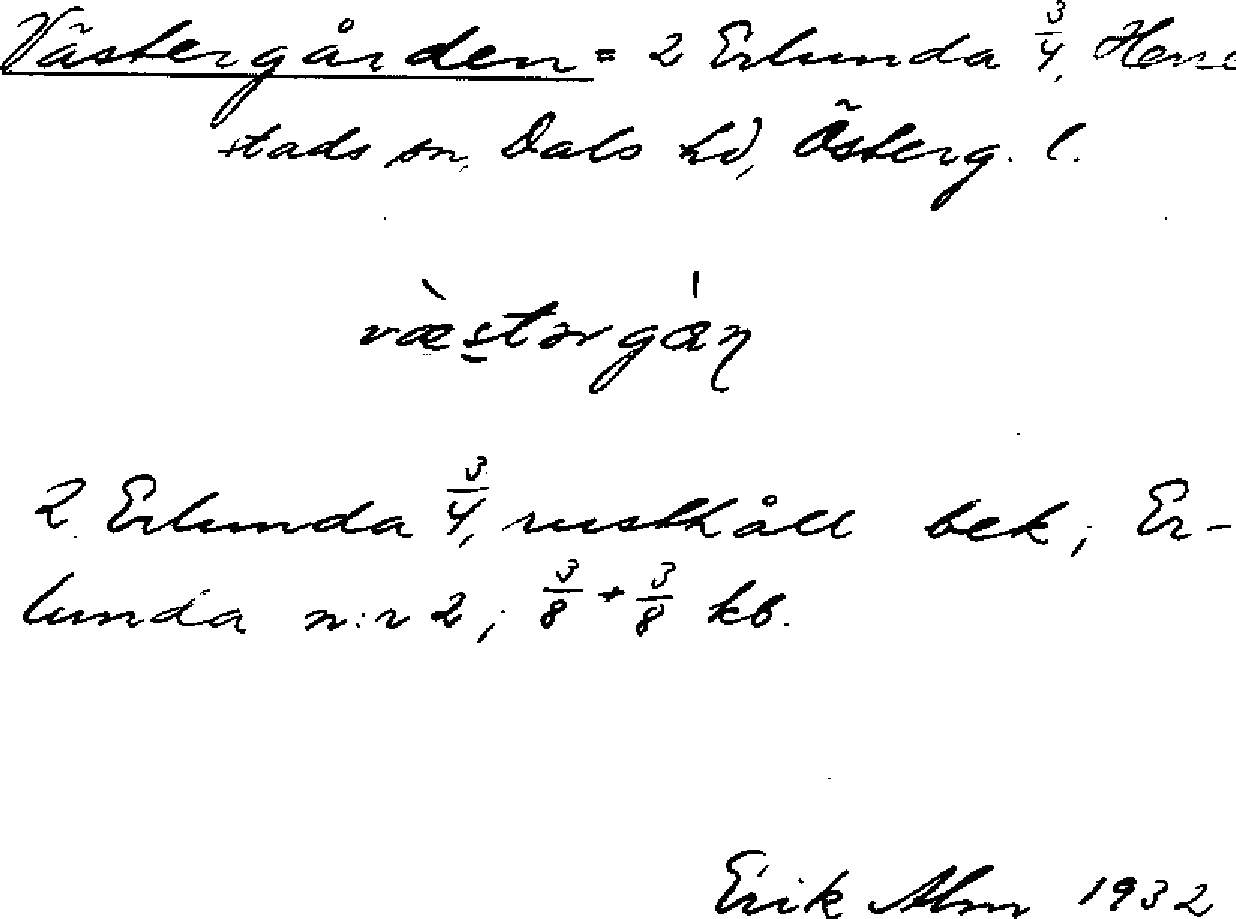 Västergården = 2 Erlunda 3/4, Herre
stads sn, Dals hd, Österg. l.
væ̀stərgán
2 Erlunda 3/4, rusthåll bek; Er-
lunda n:r 2; 3/8 + 3/8 kb.
Erik Alm 1932